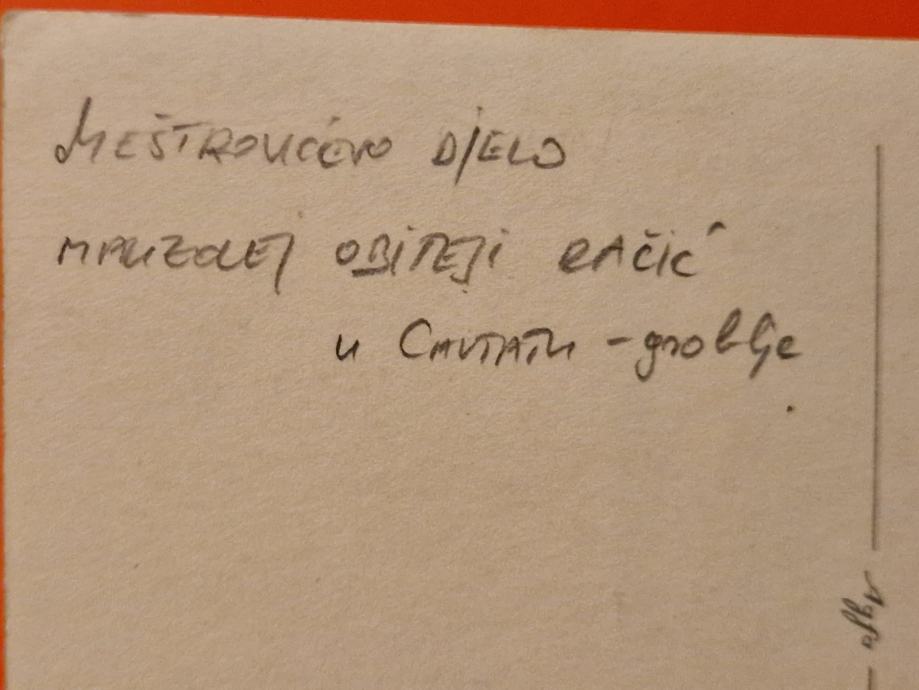 MEŠTROVIĆEVO DJELO
MAUZOLEJ OBITELJI RAČIĆ
u CAVTATU - groblje
Agfa